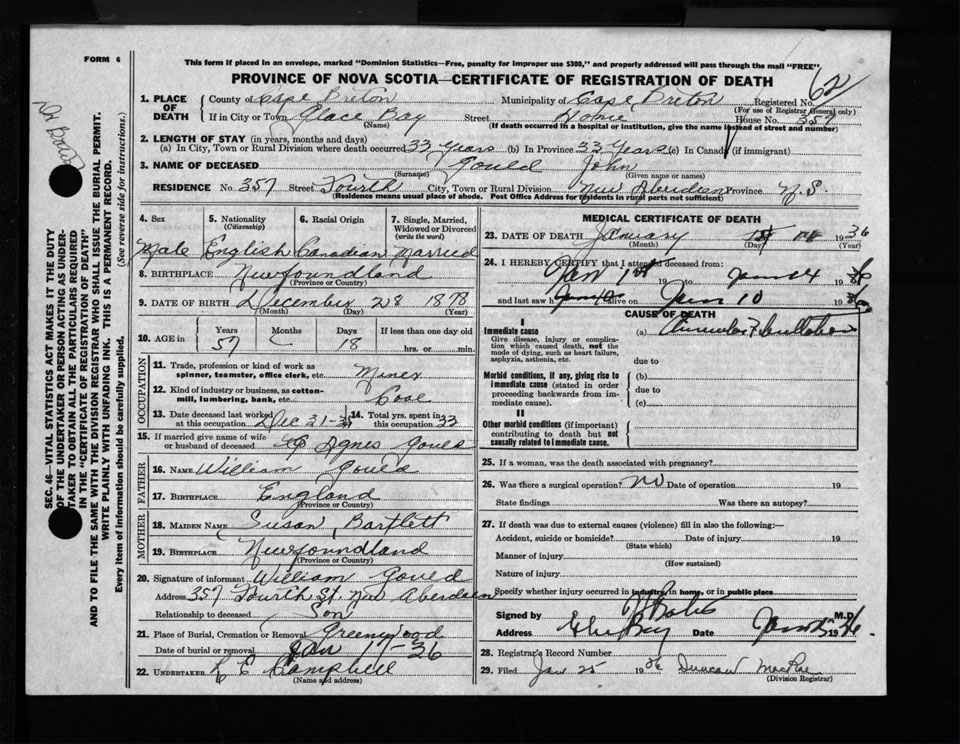 FORM 6
This form if placed in an envelope, marked "Dominion Statistics—Free, penalty for improper use $300," and properly addressed will pass through the mail "FREE".
PROVINCE OF NOVA SCOTIA—CERTIFICATE OF REGISTRATION OF DEATH
62
1. PLACE OF DEATH County of Cape Breton Municipality of Cape Breton Registered No.
(For use of Registrar General only)
If in City or Town Glace Bay Street Home House No. 357
(Name) (If death occurred in a hospital or institution, give the name instead of street and number)
2. LENGTH OF STAY (in years, months and days)
(a) In City, Town or Rural Division where death occurred 33 Years (b) In Province 33 Years (c) In Canada (if immigrant)
3. NAME OF DECEASED Gould John
(Surname) (Given name or names)
RESIDENCE No. 357 Street Fourth City, Town or Rural Division New Aberdean Province N.S.
(Residence means usual place of abode. Post Office Address for residents in rural parts not sufficient)
SEC. 46—VITAL STATISTICS ACT MAKES IT THE DUTY
OF THE UNDERTAKER OR PERSON ACTING AS UNDER-
TAKER TO OBTAIN ALL THE PARTICULARS REQUIRED
IN THE "CERTIFICATE OF REGISTRATION OF DEATH"
AND TO FILE THE SAME WITH THE DIVISION REGISTRAR WHO SHALL ISSUE THE BURIAL PERMIT.
WRITE PLAINLY WITH UNFADING INK. THIS IS A PERMANENT RECORD.
Every item of information should be carefully supplied. (See reverse side for instructions.)
4. Sex 5. Nationality (Citizenship) 6. Racial Origin 7. Single, Married, Widowed or Divorced (write the word)
Male English Canadian Married
8. BIRTHPLACE Newfoundland
(Province or Country)
9. DATE OF BIRTH December 28 1878
(Month) (Day) (Year)
10. AGE Years Months Days If less than one day old
57 18 hrs. or min.
OCCUPATION
11. Trade, profession or kind of work as spinner, teamster, office clerk, etc. Miner
12. Kind of industry or business, as cotton-mill, lumbering, bank, etc. Coal
13. Date deceased last worked at this occupation Dec 31-35 14. Total yrs. spent in this occupation 33
15. If married give name of wife or husband of deceased Agnes Gould
FATHER
16. NAME William Gould
17. BIRTHPLACE England
(Province or Country)
MOTHER
18. MAIDEN NAME Susan Bartlett
19. BIRTHPLACE Newfoundland
(Province or Country)
20. Signature of informant William Gould
Address 357 Fourth St. New Aberdeen
Relationship to deceased Son
21. Place of Burial, Cremation or Removal Greenwood
Date of burial or removal Jan 17-36
22. UNDERTAKER Campbell
(Name and address)
MEDICAL CERTIFICATE OF DEATH
23. DATE OF DEATH January 1936
(Month) (Day) (Year)
24. I HEREBY CERTIFY that I attended deceased from:
Jan 1st 19 to Jan 14 19
and last saw h alive on Jan 10 19
CAUSE OF DEATH
I
Immediate cause (a)
Give disease, injury or complication which caused death, not the mode of dying, such as heart failure, asphyxia, asthenia, etc.
due to
Morbid conditions, if any, giving rise to immediate cause (stated in order proceeding backwards from immediate cause).
(b)
due to
(c)
II
Other morbid conditions (if important) contributing to death but not causally related to immediate cause.
25. If a woman, was the death associated with pregnancy?
26. Was there a surgical operation? no Date of operation 19
State findings Was there an autopsy?
27. If death due to external causes (violence) fill in also the following:—
Accident, suicide or homicide? Date of injury 19
(State which)
Manner of injury
(How sustained)
Nature of injury
Specify whether injury occurred in industry, in home, or in public place
Signed by M.D.
Address Glace Bay Date Jan 19
28. Registrar's Record Number
29. Filed Jan 25 1936 Duncan MacRae
(Division Registrar)